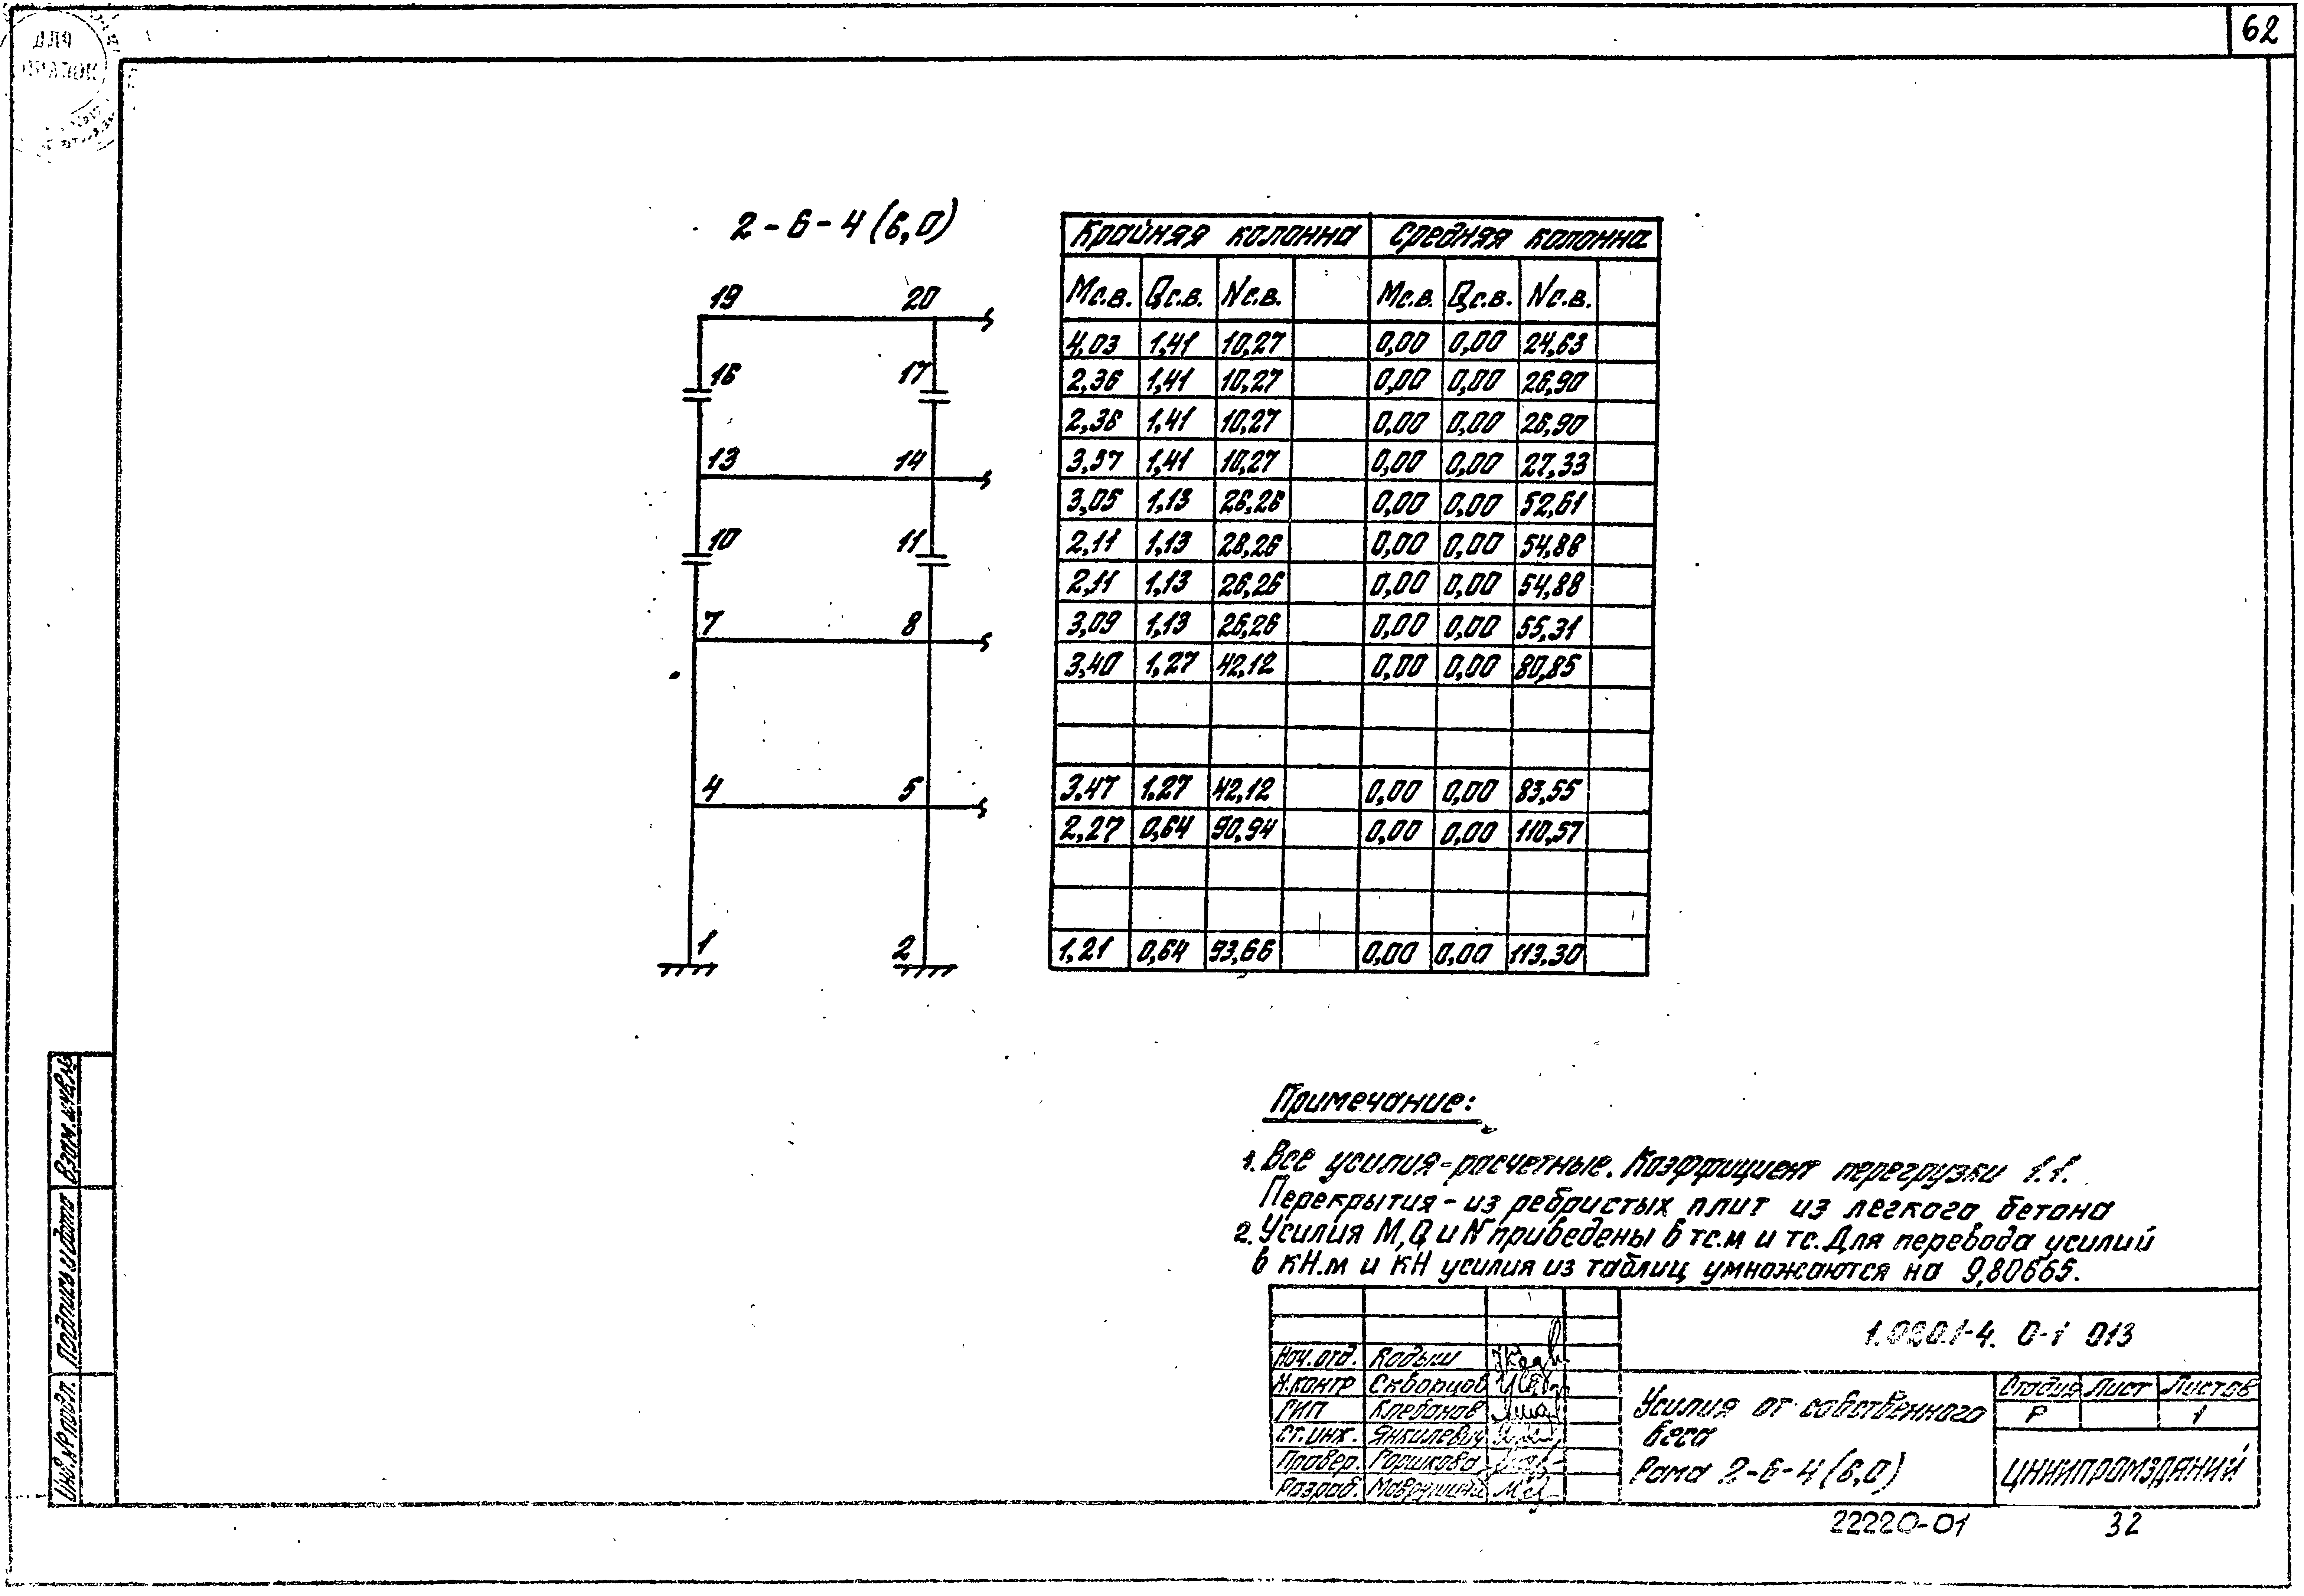 62
2-6-4 (6,0)
19 20
16 17
13 14
10 11
7 8
4 5
1 2
Крайняя колонна Средняя колонна
Мс.в. Qс.в. Nс.в. Мс.в. Qс.в. Nс.в.
4,03 1,41 10,27 0,00 0,00 24,63
2,36 1,41 10,27 0,00 0,00 26,90
2,36 1,41 10,27 0,00 0,00 26,90
3,57 1,41 10,27 0,00 0,00 27,33
3,05 1,13 26,26 0,00 0,00 52,61
2,11 1,13 26,26 0,00 0,00 54,88
2,11 1,13 26,26 0,00 0,00 54,88
3,09 1,13 26,26 0,00 0,00 55,31
3,40 1,27 42,12 0,00 0,00 80,85
3,47 1,27 42,12 0,00 0,00 83,55
2,27 0,64 90,94 0,00 0,00 110,57
1,21 0,64 93,66 0,00 0,00 113,30
Примечание:
1. Все усилия-расчетные. Коэффициент перегрузки 1.1.
Перекрытия - из ребристых плит из легкого бетона
2. Усилия М, Q и N приведены в тс.м и тс. Для перевода усилий
в кН.м и кН усилия из таблиц умножаются на 9,80665.
1.020.1-4. 0-1 013
Нач. отд. Кодыш
Н.контр Скворцов
ГИП Клебанов
Ст. инж. Янкилевич
Провер. Горшкова
Разраб.
Усилия от собственного
веса
Рама 2-6-4 (6,0)
Стадия Лист Листов
Р 1
ЦНИИПРОМЗДАНИЙ
22220-01 32
Взам. инв. №
Подпись и дата
Инв. № подл.